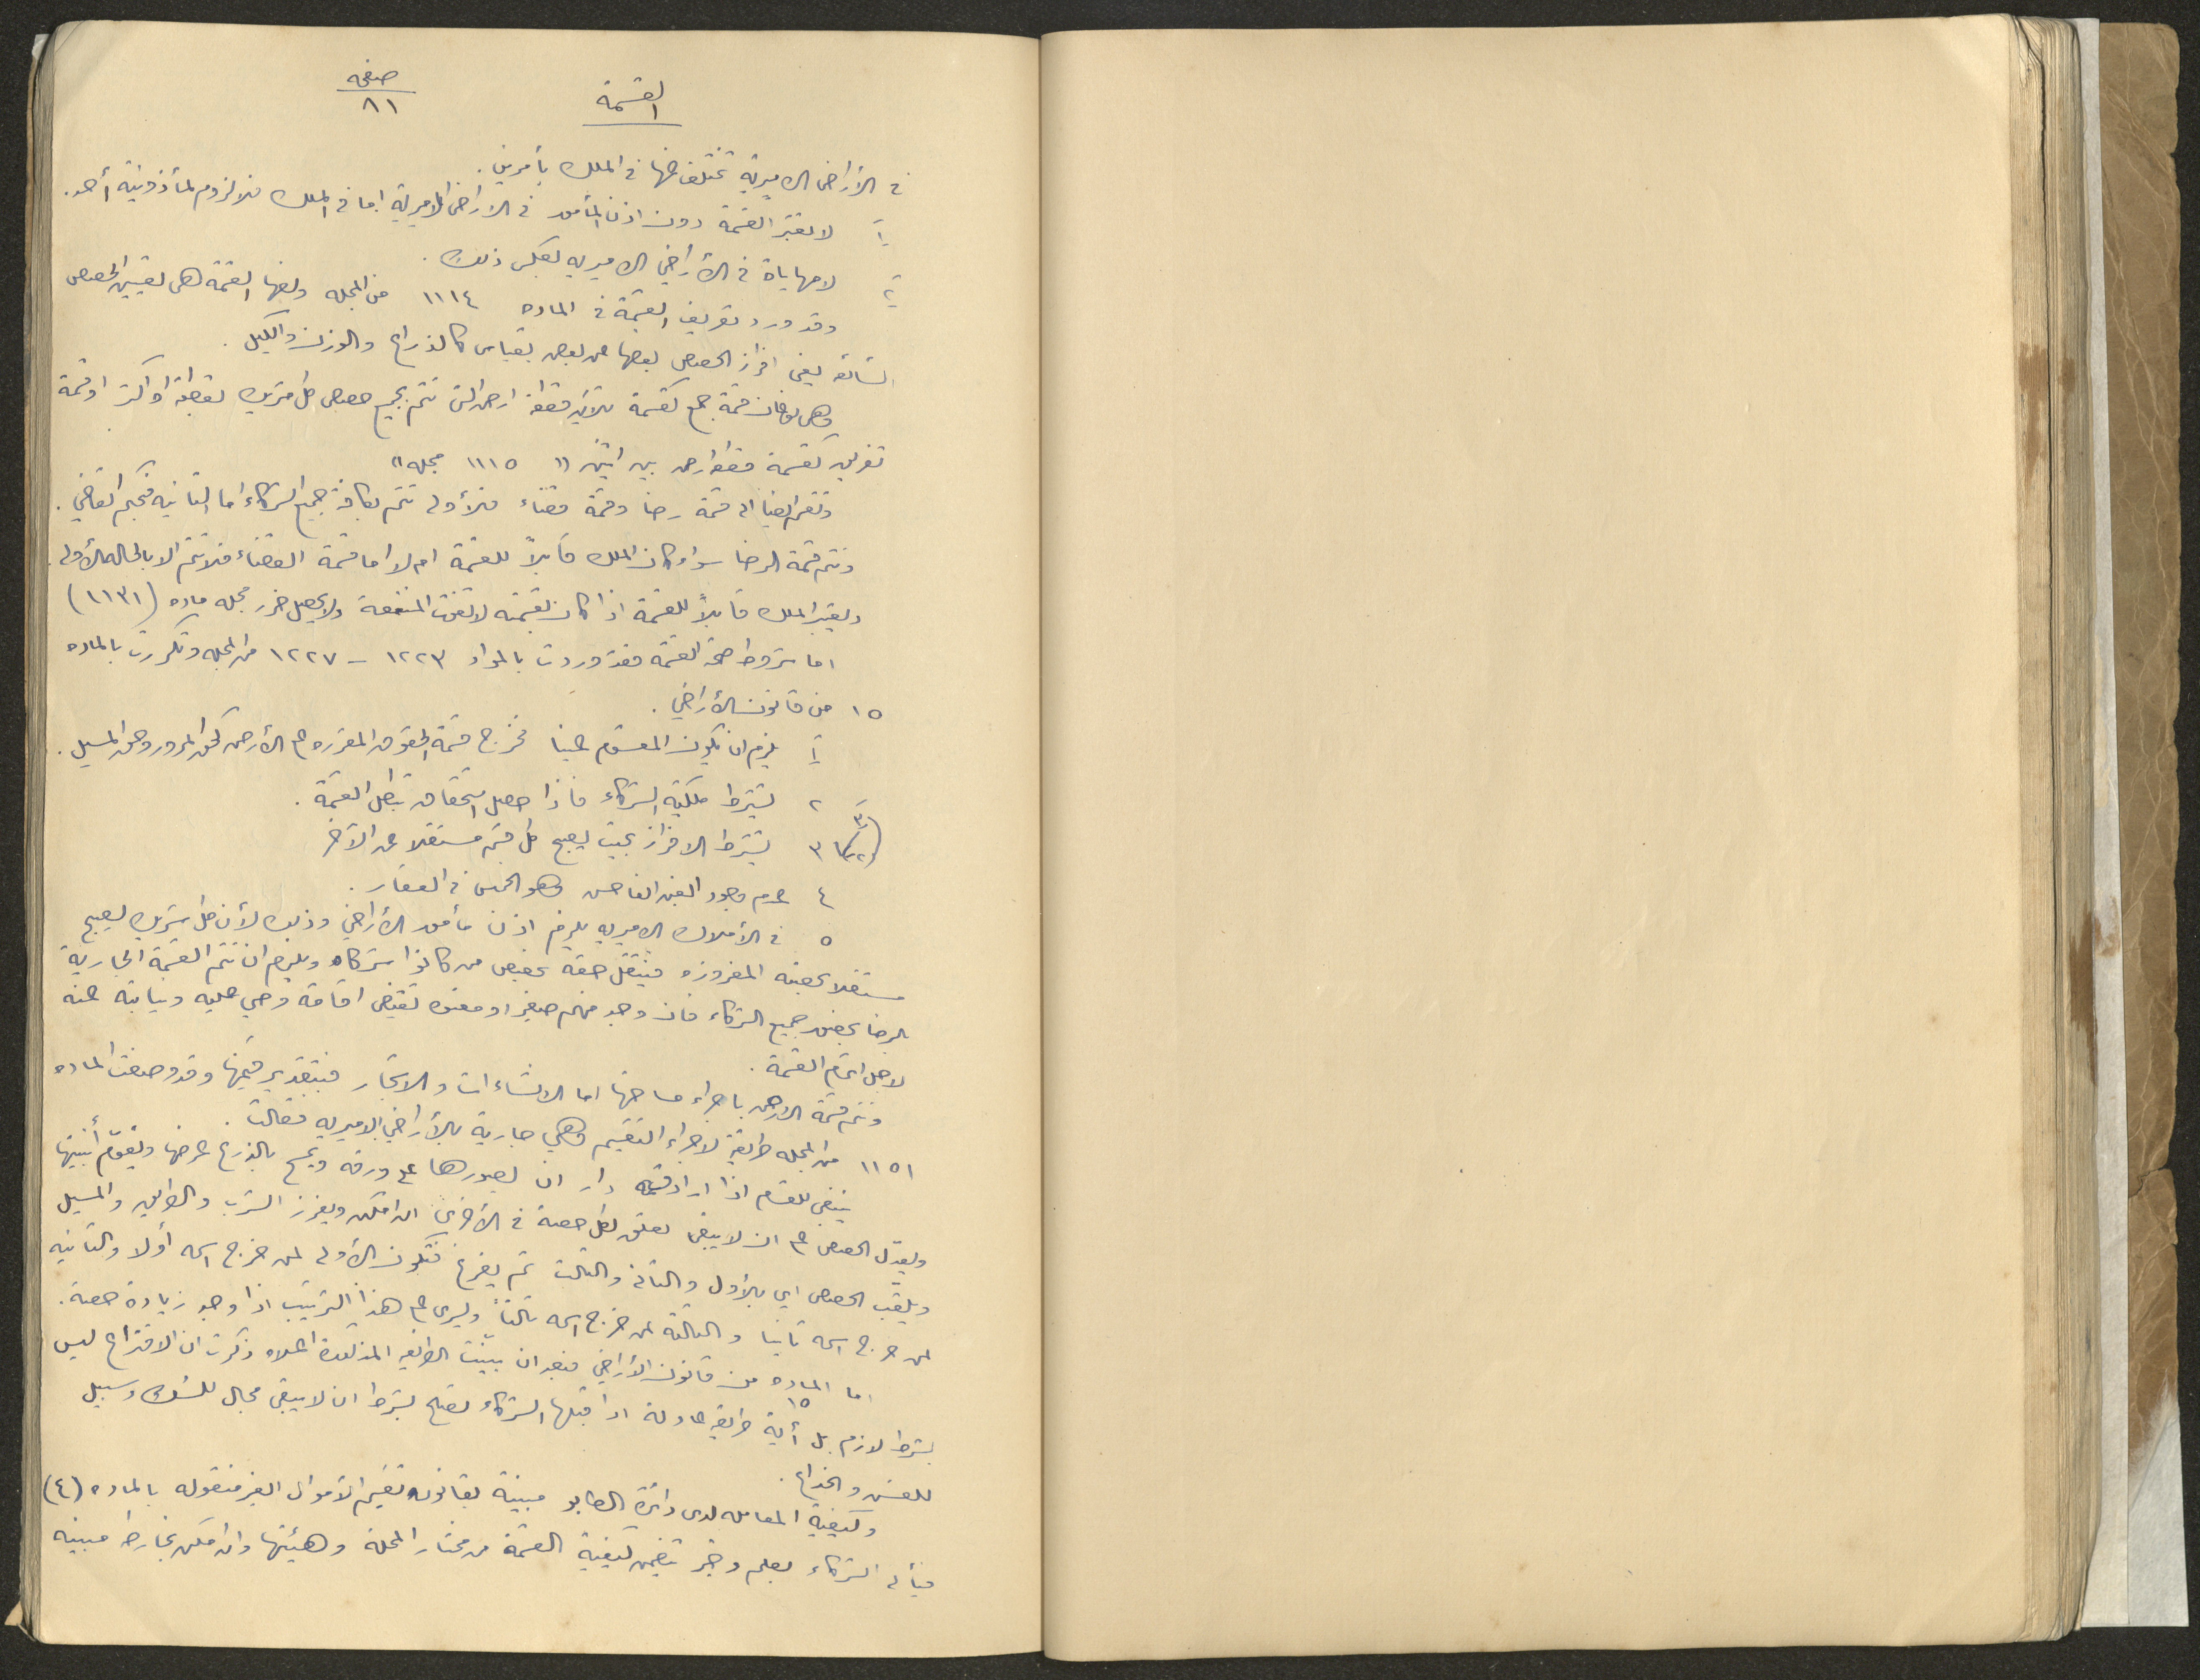 صفحه
٨١
القسمة
في الأراضي الاميرية تختلف عنها في الملك بأمرين.
١ً لا تعتبر القسمة دون اذن المأمور في الاراضي الاميرية اما في الملك فلا لزوم لمأذونية أحد.
٢ً لا مهاياة في الأراضي الاميريه بعكس ذلك.
وقد ورد تعريف القسمة في الماده ١١١٤ من المجله ونصها القسمة هي تعيين الحصص
الشائعه يعني افراز الحصص بعضها من بعض بقياس كالذراع والوزن والكيل.
وهي نوعان قسمة جمع كقسمة ثلاثين قطعة ارض التي تتم بجمع حصص كل شريك بقطعة او اكثر او قسمة
تفريق كقسمة قطعة ارض بين اثنين " ١١١٥ مجله "
وتقسم ايضا الى قسمة رضا وقسمة قضاء فالأولى تتم بكافة جميع الشركاء اما الثانيه فبحكم القاضي.
وتتم قسمة الرضا سواء كان الملك قابلاً للقسمة ام لا اما قسمة القضاء فلا تتم الا بالحاله الأولى.
ويعتبر الملك قابلاً للقسمة اذا كان بقسمته لا تفوت المنفعة ولا يحصل ضرر مجله ماده (١١٣١)
اما شروط صحة القسمة فقد وردت بالمواد ١٢٢٣ - ١٢٢٧ من المجله وتكررت بالماده
١٥ من قانون الأراضي.
١ً يلزم ان يكون المقسوم عينا فخرج قسمة الحقوق المقرره على الأرض كحق المرور وحق المسيل.
٢ يشترط ملكية الشركاء فاذا حصل استحقاق تبطل القسمة.
٣ يشترط الافراز بحيث يصبح كل قسم مستقلا عن الآخر
٤ عدم وجود الغبن الفاحش وهو الخمس في العقار.
٥ في الأملاك الاميريه يلزم اذن مأمور الأراضي وذلك لأن كل شريك يصبح
مستقلا بحصته المفروزه فينتقل حقه بحصص من كانوا شركاه ويلزم ان تتم القسمة الجارية
بالرضا بحضور جميع الشركاء فان وجد منهم صغير او معتوه تقتضي اقامة وصي عليه ونيابته عنه
لاجل اتمام القسمة.
وتتم قسمة الارض باجراء مساحتها اما الانشاءات والاشجار فبتقدير قيمتها وقد وصفت الماده
١١٥١ من المجله طريقة لاجراء التقسيم وهي جارية بالأراضي الاميريه فقالت.
ينبغي للقسام اذا اراد قسمة دار ان يصورها على ورقه ويمسح بالذرع عرصها ويقوّم أبنيتها
ويعدّل الحصص على ان لا يبقى تعلق لكل حصة في الأخرى ان امكن ويفرز الشرب والطريق والمسيل
ويلقّب الحصص اي بالأول والثاني والثالث ثم يقرع فتكون الأولى لمن خرج اسمه أولا والثانيه
لمن خرج اسمه ثانيا والثالثه لمن خرج اسمه ثالثاً ويجري على هذا الترتيب اذا وجد زيادة حصة.
اما الماده ١٥ من قانون الأراضي فبعد ان بيّنت الطريقه المذكورة اعلاه ذكرت ان الاقتراع ليس
بشرط لازم بل أية طريقه عادلة اذا قبلها الشركاء تصح بشرط ان لا يبقى مجال للشك وسبيل
للغش والخداع.
وكيفية المعامله لدى دائرة الطابو مبينة بقانون تقسيم الاموال الغير منقوله بالماده (٤)
فيأتى الشركاء بعلم وخبر يتضمن كيفية القسمة من مختار المحلة وهيئتها وان امكن بخارطه مبينه